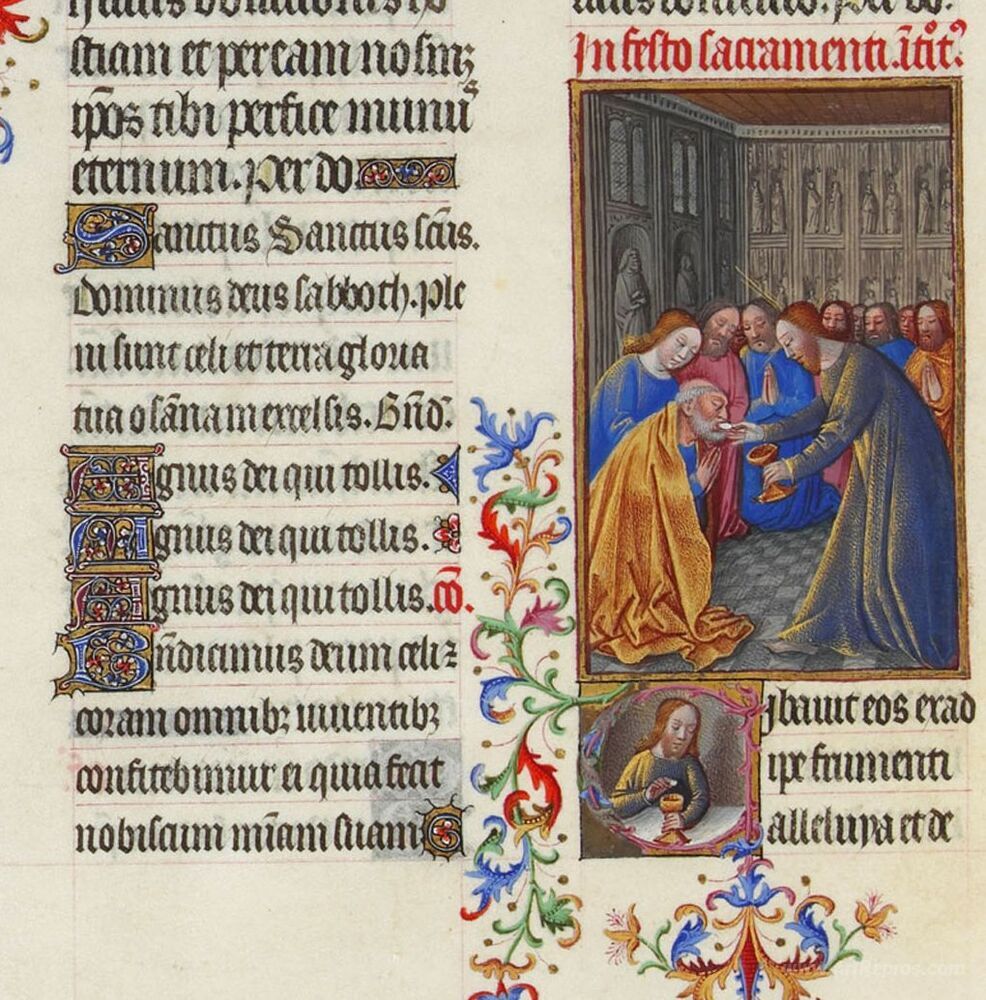 stiam et pereant nosmz
ip̄os tibi perfice munu᷒
eternum. Per do
Sanctus Sanctus sc̄us.
Dominus deus sabboth. Ple
ni sunt celi et terra gloria
tua osāna in excelsis. Bn̄d
Agnus dei qui tollis.
Agnus dei qui tollis.
Agnus dei qui tollis. cō.
Bn̄dicimus deum celi z
coram omnibz uiuentibz
confitebimur ei quia fecit
nobiscum mīam suam G
In festo sacramenti.
Cibauit eos ex ad
ipe frumenti
alleluya et de